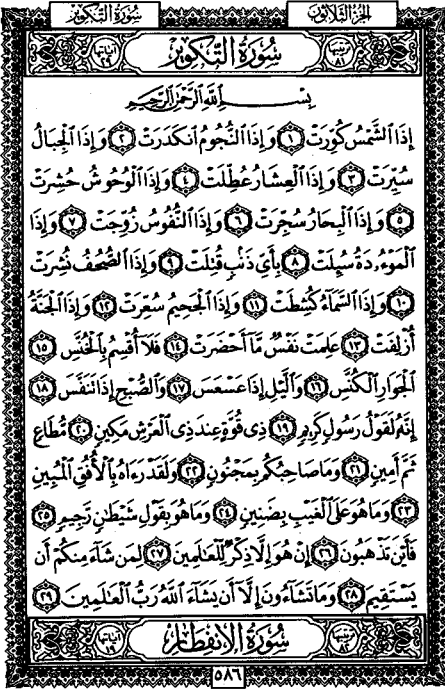 سُورَةُ التَّكْوِيرِ الجُزْءُ الثَّلَاثُونَ
آيَاتُهَا ٢٩ سُورَةُ التَّكْوِيرِ تَرْتِيبُهَا ٨١
بِسْمِ ٱللَّهِ ٱلرَّحْمَٰنِ ٱلرَّحِيمِ
إِذَا ٱلشَّمْسُ كُوِّرَتْ ١ وَإِذَا ٱلنُّجُومُ ٱنكَدَرَتْ ٢ وَإِذَا ٱلْجِبَالُ
سُيِّرَتْ ٣ وَإِذَا ٱلْعِشَارُ عُطِّلَتْ ٤ وَإِذَا ٱلْوُحُوشُ حُشِرَتْ
٥ وَإِذَا ٱلْبِحَارُ سُجِّرَتْ ٦ وَإِذَا ٱلنُّفُوسُ زُوِّجَتْ ٧ وَإِذَا
ٱلْمَوْءُۥدَةُ سُئِلَتْ ٨ بِأَيِّ ذَنۢبٍ قُتِلَتْ ٩ وَإِذَا ٱلصُّحُفُ نُشِرَتْ
١٠ وَإِذَا ٱلسَّمَآءُ كُشِطَتْ ١١ وَإِذَا ٱلْجَحِيمُ سُعِّرَتْ ١٢ وَإِذَا ٱلْجَنَّةُ
أُزْلِفَتْ ١٣ عَلِمَتْ نَفْسٌ مَّآ أَحْضَرَتْ ١٤ فَلَآ أُقْسِمُ بِٱلْخُنَّسِ ١٥
ٱلْجَوَارِ ٱلْكُنَّسِ ١٦ وَٱلَّيْلِ إِذَا عَسْعَسَ ١٧ وَٱلصُّبْحِ إِذَا تَنَفَّسَ ١٨
إِنَّهُۥ لَقَوْلُ رَسُولٍ كَرِيمٍ ١٩ ذِي قُوَّةٍ عِندَ ذِي ٱلْعَرْشِ مَكِينٍ ٢٠ مُّطَاعٍ
ثَمَّ أَمِينٍ ٢١ وَمَا صَاحِبُكُم بِمَجْنُونٍ ٢٢ وَلَقَدْ رَءَاهُ بِٱلْأُفُقِ ٱلْمُبِينِ
٢٣ وَمَا هُوَ عَلَى ٱلْغَيْبِ بِضَنِينٍ ٢٤ وَمَا هُوَ بِقَوْلِ شَيْطَٰنٍ رَّجِيمٍ ٢٥
فَأَيْنَ تَذْهَبُونَ ٢٦ إِنْ هُوَ إِلَّا ذِكْرٌ لِّلْعَٰلَمِينَ ٢٧ لِمَن شَآءَ مِنكُمْ أَن
يَسْتَقِيمَ ٢٨ وَمَا تَشَآءُونَ إِلَّآ أَن يَشَآءَ ٱللَّهُ رَبُّ ٱلْعَٰلَمِينَ ٢٩
آيَاتُهَا ١٩ سُورَةُ الِانفِطَارِ تَرْتِيبُهَا ٨٢
٥٨٦